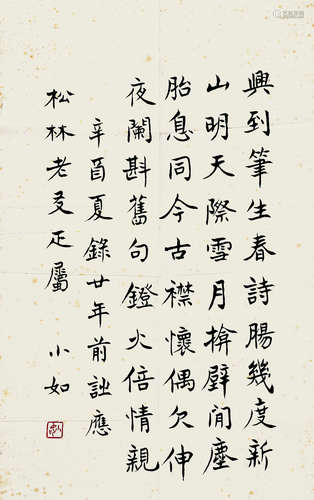 興到筆生春詩腸幾度新
山明天際雪月揜壁間塵
胎息同今古襟懷偶欠伸
夜闌斟舊句鐙火倍情親
辛酉夏錄廿年前詶應
松林老友正屬 小如